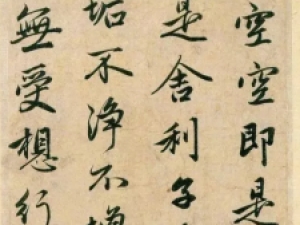 空空即是
是舍利子
垢不净不增
無受想行